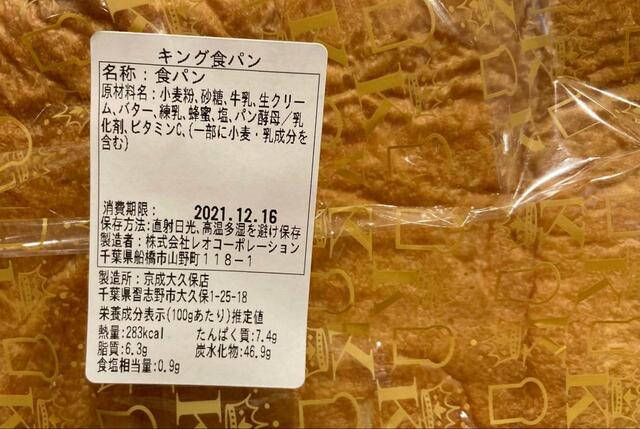 キング食パン
名称：食パン
原材料名：小麦粉、砂糖、牛乳、生クリー
ム、バター、練乳、蜂蜜、塩、パン酵母／乳
化剤、ビタミンC、（一部に小麦・乳成分を
含む）
消費期限：　2021.12.16
保存方法：直射日光、高温多湿を避け保存
製造者：株式会社レオコーポレーション
千葉県船橋市山野町118-1
製造所：京成大久保店
千葉県習志野市大久保1-25-18
栄養成分表示（100gあたり）推定値
熱量：283kcal　たんぱく質：7.4g
脂質：6.3g　炭水化物：46.9g
食塩相当量：0.9g